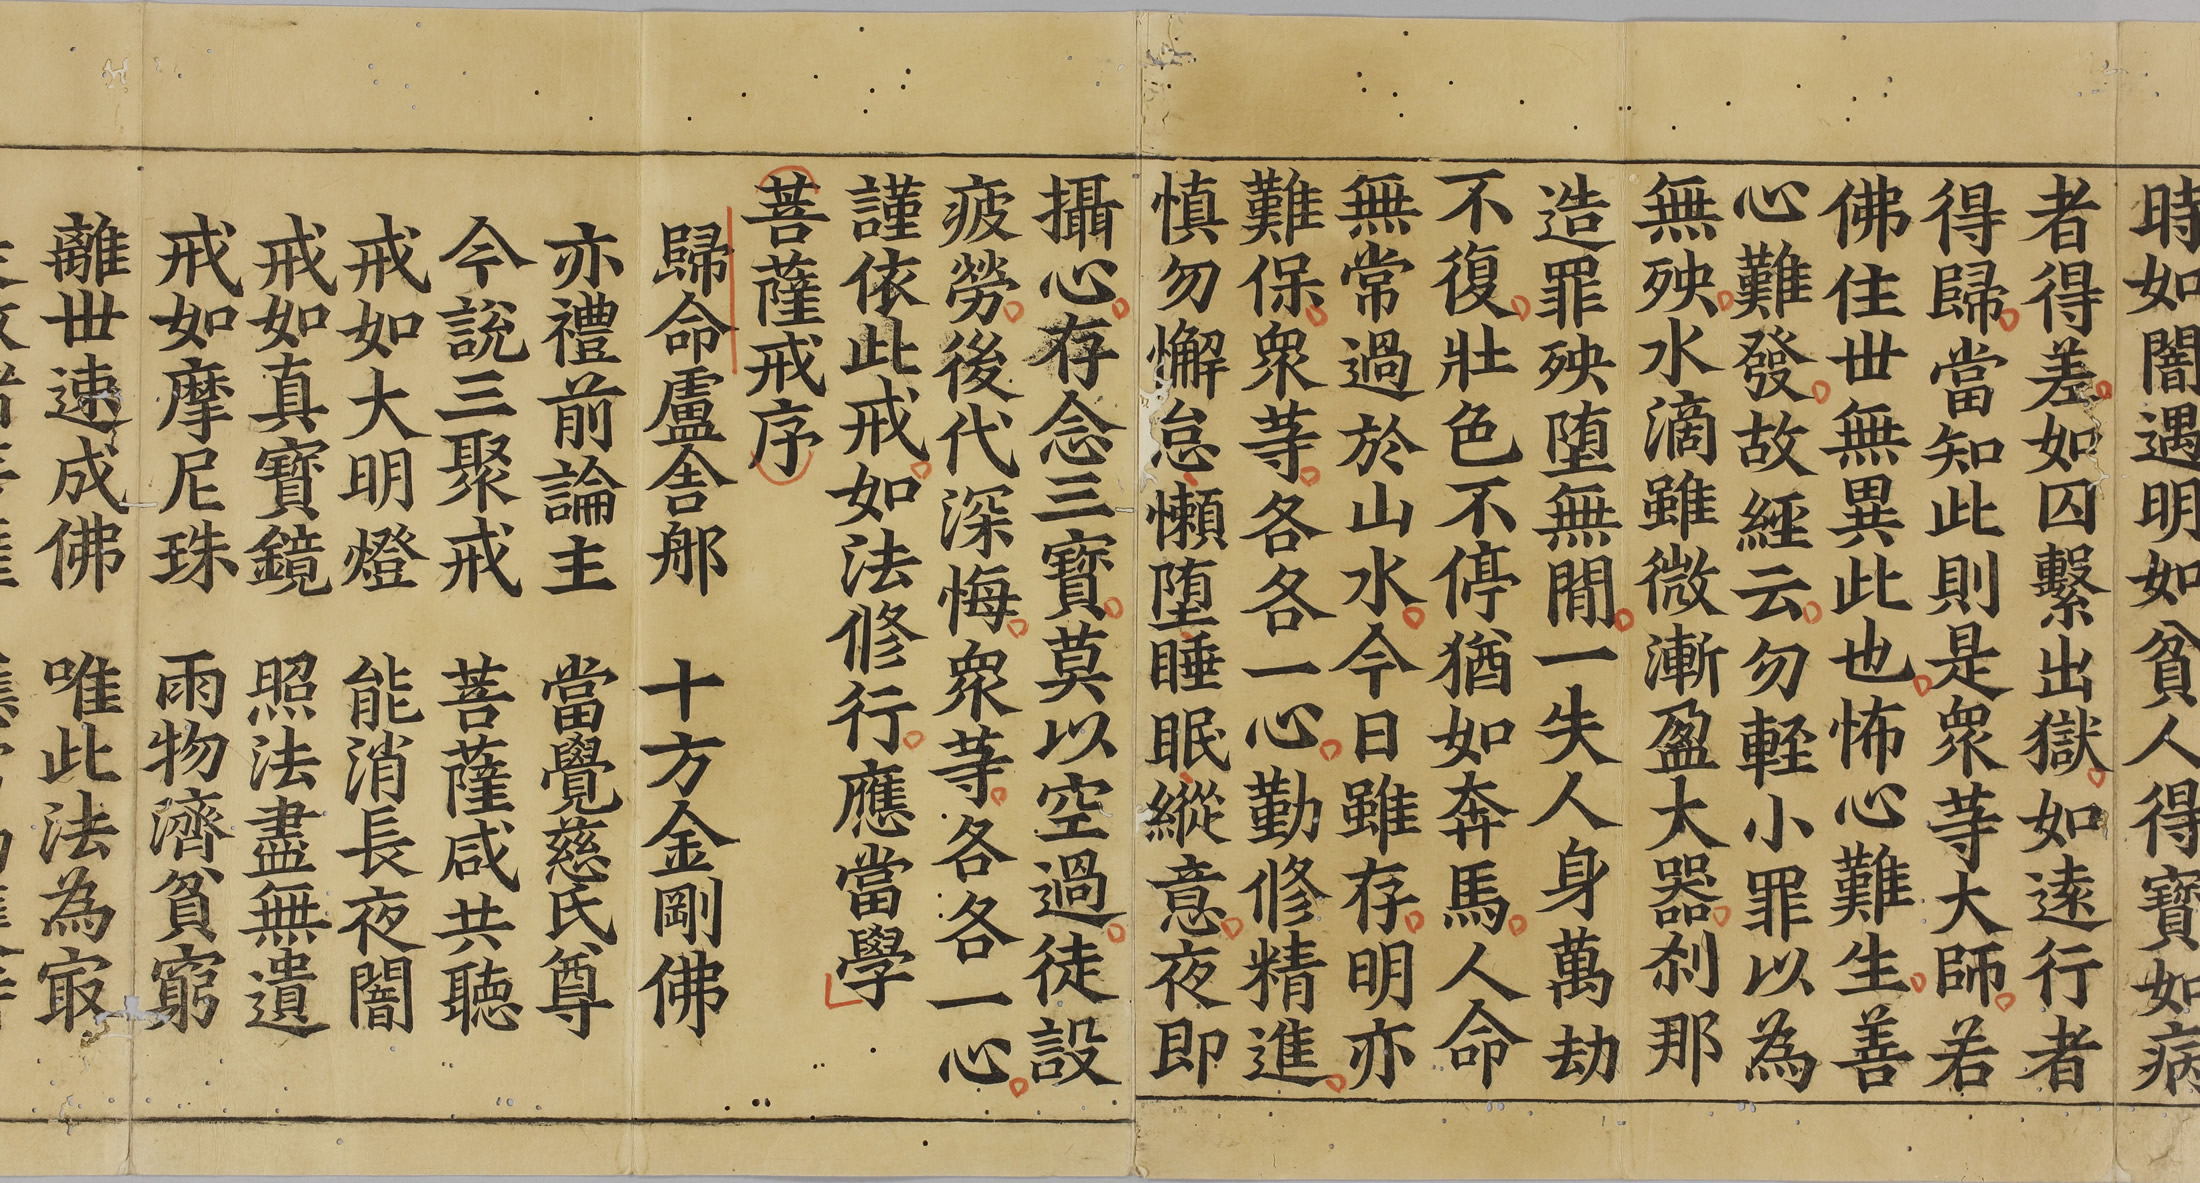 時如闇遇明如貧人得寶如病
者得差如囚繫出獄如遠行者
得歸當知此則是衆等大師若
佛住世無異此也怖心難生善
心難發故經云勿輕小罪以為
無殃水滴雖微漸盈大器刹那
造罪殃墮無間一失人身萬劫
不復壯色不停猶如奔馬人命
無常過於山水今日雖存明亦
難保衆等各各一心勤修精進
慎勿懈怠懶墮睡眠縱意夜即
攝心存念三寶莫以空過徒設
疲勞後代深悔衆等各各一心
謹依此戒如法修行應當學
菩薩戒序
歸命盧舍那 十方金剛佛
亦禮前論主 當覺慈氏尊
今說三聚戒 菩薩咸共聽
戒如大明燈 能消長夜闇
戒如真寶鏡 照法盡無遺
戒如摩尼珠 雨物濟貧窮
離世速成佛 唯此法為冣